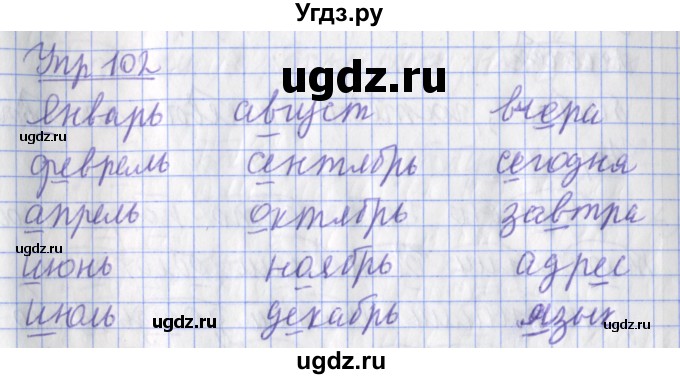 Угдз.ру
Упр 102
ugdz.ru
январь август вчера
ugdz.ru
февраль сентябрь сегодня
ugdz.ru
апрель октябрь завтра
ugdz.ru
июнь ноябрь адрес
июль декабрь язык
ugdz.ru
ugdz.ru
ugdz.ru